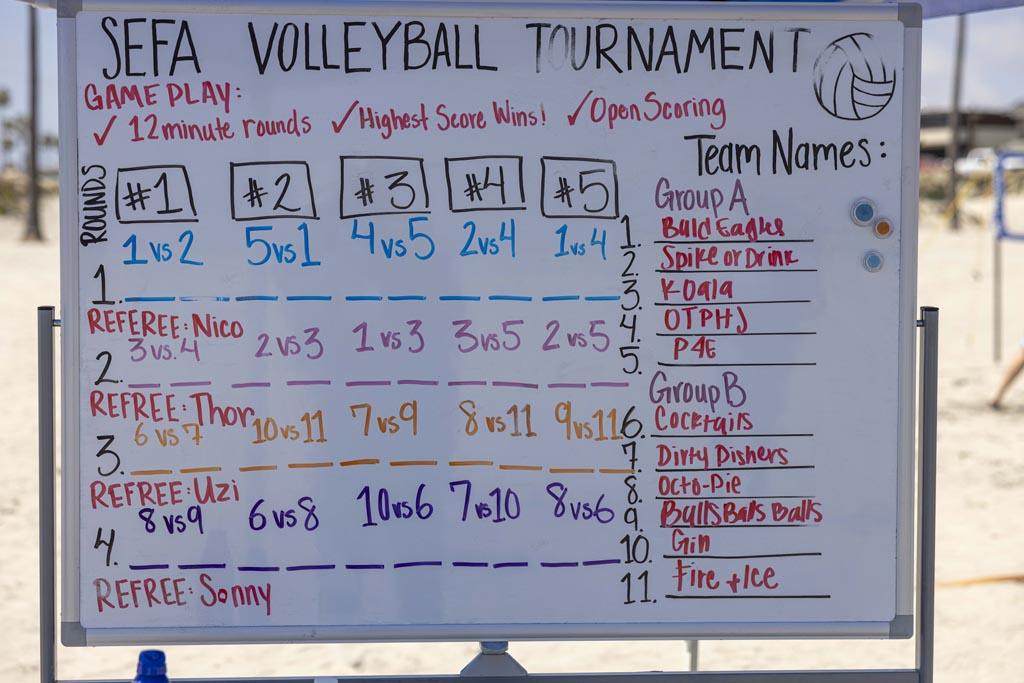 SEFA VOLLEYBALL TOURNAMENT
GAME PLAY:
✓ 12 minute rounds ✓ Highest Score Wins! ✓ Open Scoring
Team Names:
ROUNDS
#1 #2 #3 #4 #5
1 vs 2 5 vs 1 4 vs 5 2 vs 4 1 vs 4
1.
REFEREE: Nico
3 vs. 4 2 vs 3 1 vs 3 3 vs 5 2 vs 5
2.
REFREE: Thor
6 vs 7 10 vs 11 7 vs 9 8 vs 11 9 vs 11
3.
REFREE: Uzi
8 vs 9 6 vs 8 10 vs 6 7 vs 10 8 vs 6
4.
REFREE: Sonny
Group A
1. Bald Eagles
2. Spike or Drink
3. Koala
4. OTPHJ
5. P4E
Group B
6. Cocktails
7. Dirty Dishers
8. Octo-Pie
9. Balls Balls Balls
10. Gin
11. Fire + Ice